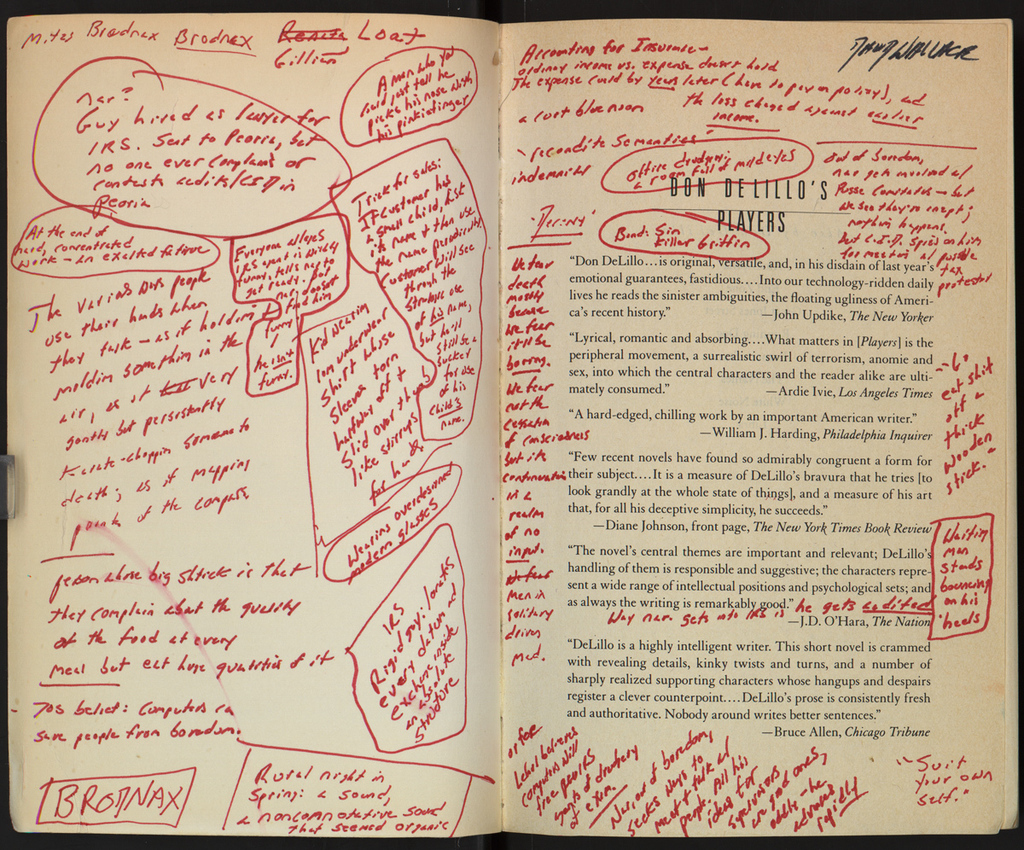 Mites Brodnax BRODNAX Loaf
Gillian
Nar?
Guy hired as lawyer for
IRS. Sent to Peoria, but
no one ever complains or
contests audits/CID in
Peoria
A man who you
could just tell he
picks his nose with
his pinkie finger
At the end of
hard, concentrated
work – an exalted fatigue
Everyone alleges
IRS agent is wildly
funny, tells nar to
get ready. But
nar doesn't
find him
funny
he isn't
funny.
Trick for sales:
If customer has
a small child, ask
its name & then use
the name periodically.
Customer will see
through the
strategic use
of his name,
but he'll
still be a
sucker
for use
of his
child's
name.
The various ways people
use their hands when
they talk – as if holding
molding something in the
air, as if very
gently but persistently
Karate-chopping someone to
death; as if mapping
points of the compass
Kid wearing
long underwear
shirt whose
sleeves torn
halfway off &
slid over thumb
like stirrups
for hands
Wearing overdesigned
modern glasses
person whose big shtick is that
they complain about the quality
of the food at every
meal but eat huge quantities of it
IRS
Rigid guy: locates
every datum and
exchange inside
an absolute
structure
– 70s belief: Computers can
save people from boredom.
BRODNAX
Rural night in
Spring: a sound,
a nonconnotative sound
that seemed organic
Accounting for Insurance –
ordinary income vs. expense doesn't hold
The expense could be years later (have to pay on policy), and
the loss charged against earlier
income.
a root blue noon
DAVID WALLACE
– recondite semantics
indemnity
office drudgery:
a room full of mild eyes
DON DELILLO'S
PLAYERS
Out of boredom,
nar gets involved w/
Posse Comitatus – but
we see they're inept;
nothing happens.
But C.I.D. spies on him
for meeting w/ possible
tax
protestor
Band: Sin
Killer Griffin
We fear
death
mostly
because
we fear
it'll be
boring.
We fear
not the
cessation
of consciousness
but its
continuation
in a
realm
of no
input.
Men in
solitary
driven
mad.
"Don DeLillo...is original, versatile, and, in his disdain of last year's
emotional guarantees, fastidious....Into our technology-ridden daily
lives he reads the sinister ambiguities, the floating ugliness of Ameri-
ca's recent history."
—John Updike, The New Yorker
"Lyrical, romantic and absorbing....What matters in [Players] is the
peripheral movement, a surrealistic swirl of terrorism, anomie and
sex, into which the central characters and the reader alike are ulti-
mately consumed."
—Ardie Ivie, Los Angeles Times
"A hard-edged, chilling work by an important American writer."
—William J. Harding, Philadelphia Inquirer
"Few recent novels have found so admirably congruent a form for
their subject....It is a measure of DeLillo's bravura that he tries [to
look grandly at the whole state of things], and a measure of his art
that, for all his deceptive simplicity, he succeeds."
—Diane Johnson, front page, The New York Times Book Review
"The novel's central themes are important and relevant; DeLillo's
handling of them is responsible and suggestive; the characters repre-
sent a wide range of intellectual positions and psychological sets; and
as always the writing is remarkably good."
Way nar. gets into IRS is he gets audited
—J.D. O'Hara, The Nation
"DeLillo is a highly intelligent writer. This short novel is crammed
with revealing details, kinky twists and turns, and a number of
sharply realized supporting characters whose hangups and despairs
register a clever counterpoint....DeLillo's prose is consistently fresh
and authoritative. Nobody around writes better sentences."
—Bruce Allen, Chicago Tribune
eat shit
off a
thick
wooden
stick."
Waiting
man
stands
bouncing
on his
heels
believes
computers will
free people
from drudgery
of exam.
Nar, out of boredom,
seeks ways to
meet & talk w/
people. All his
ideas for
are good ones,
oddly – he
advances
rapidly
"Suit
your own
self."